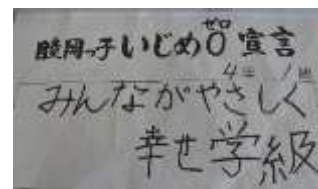 駿岡っ子いじめ0宣言
ゼロ
4年1組
みんながやさしく
幸せ学級